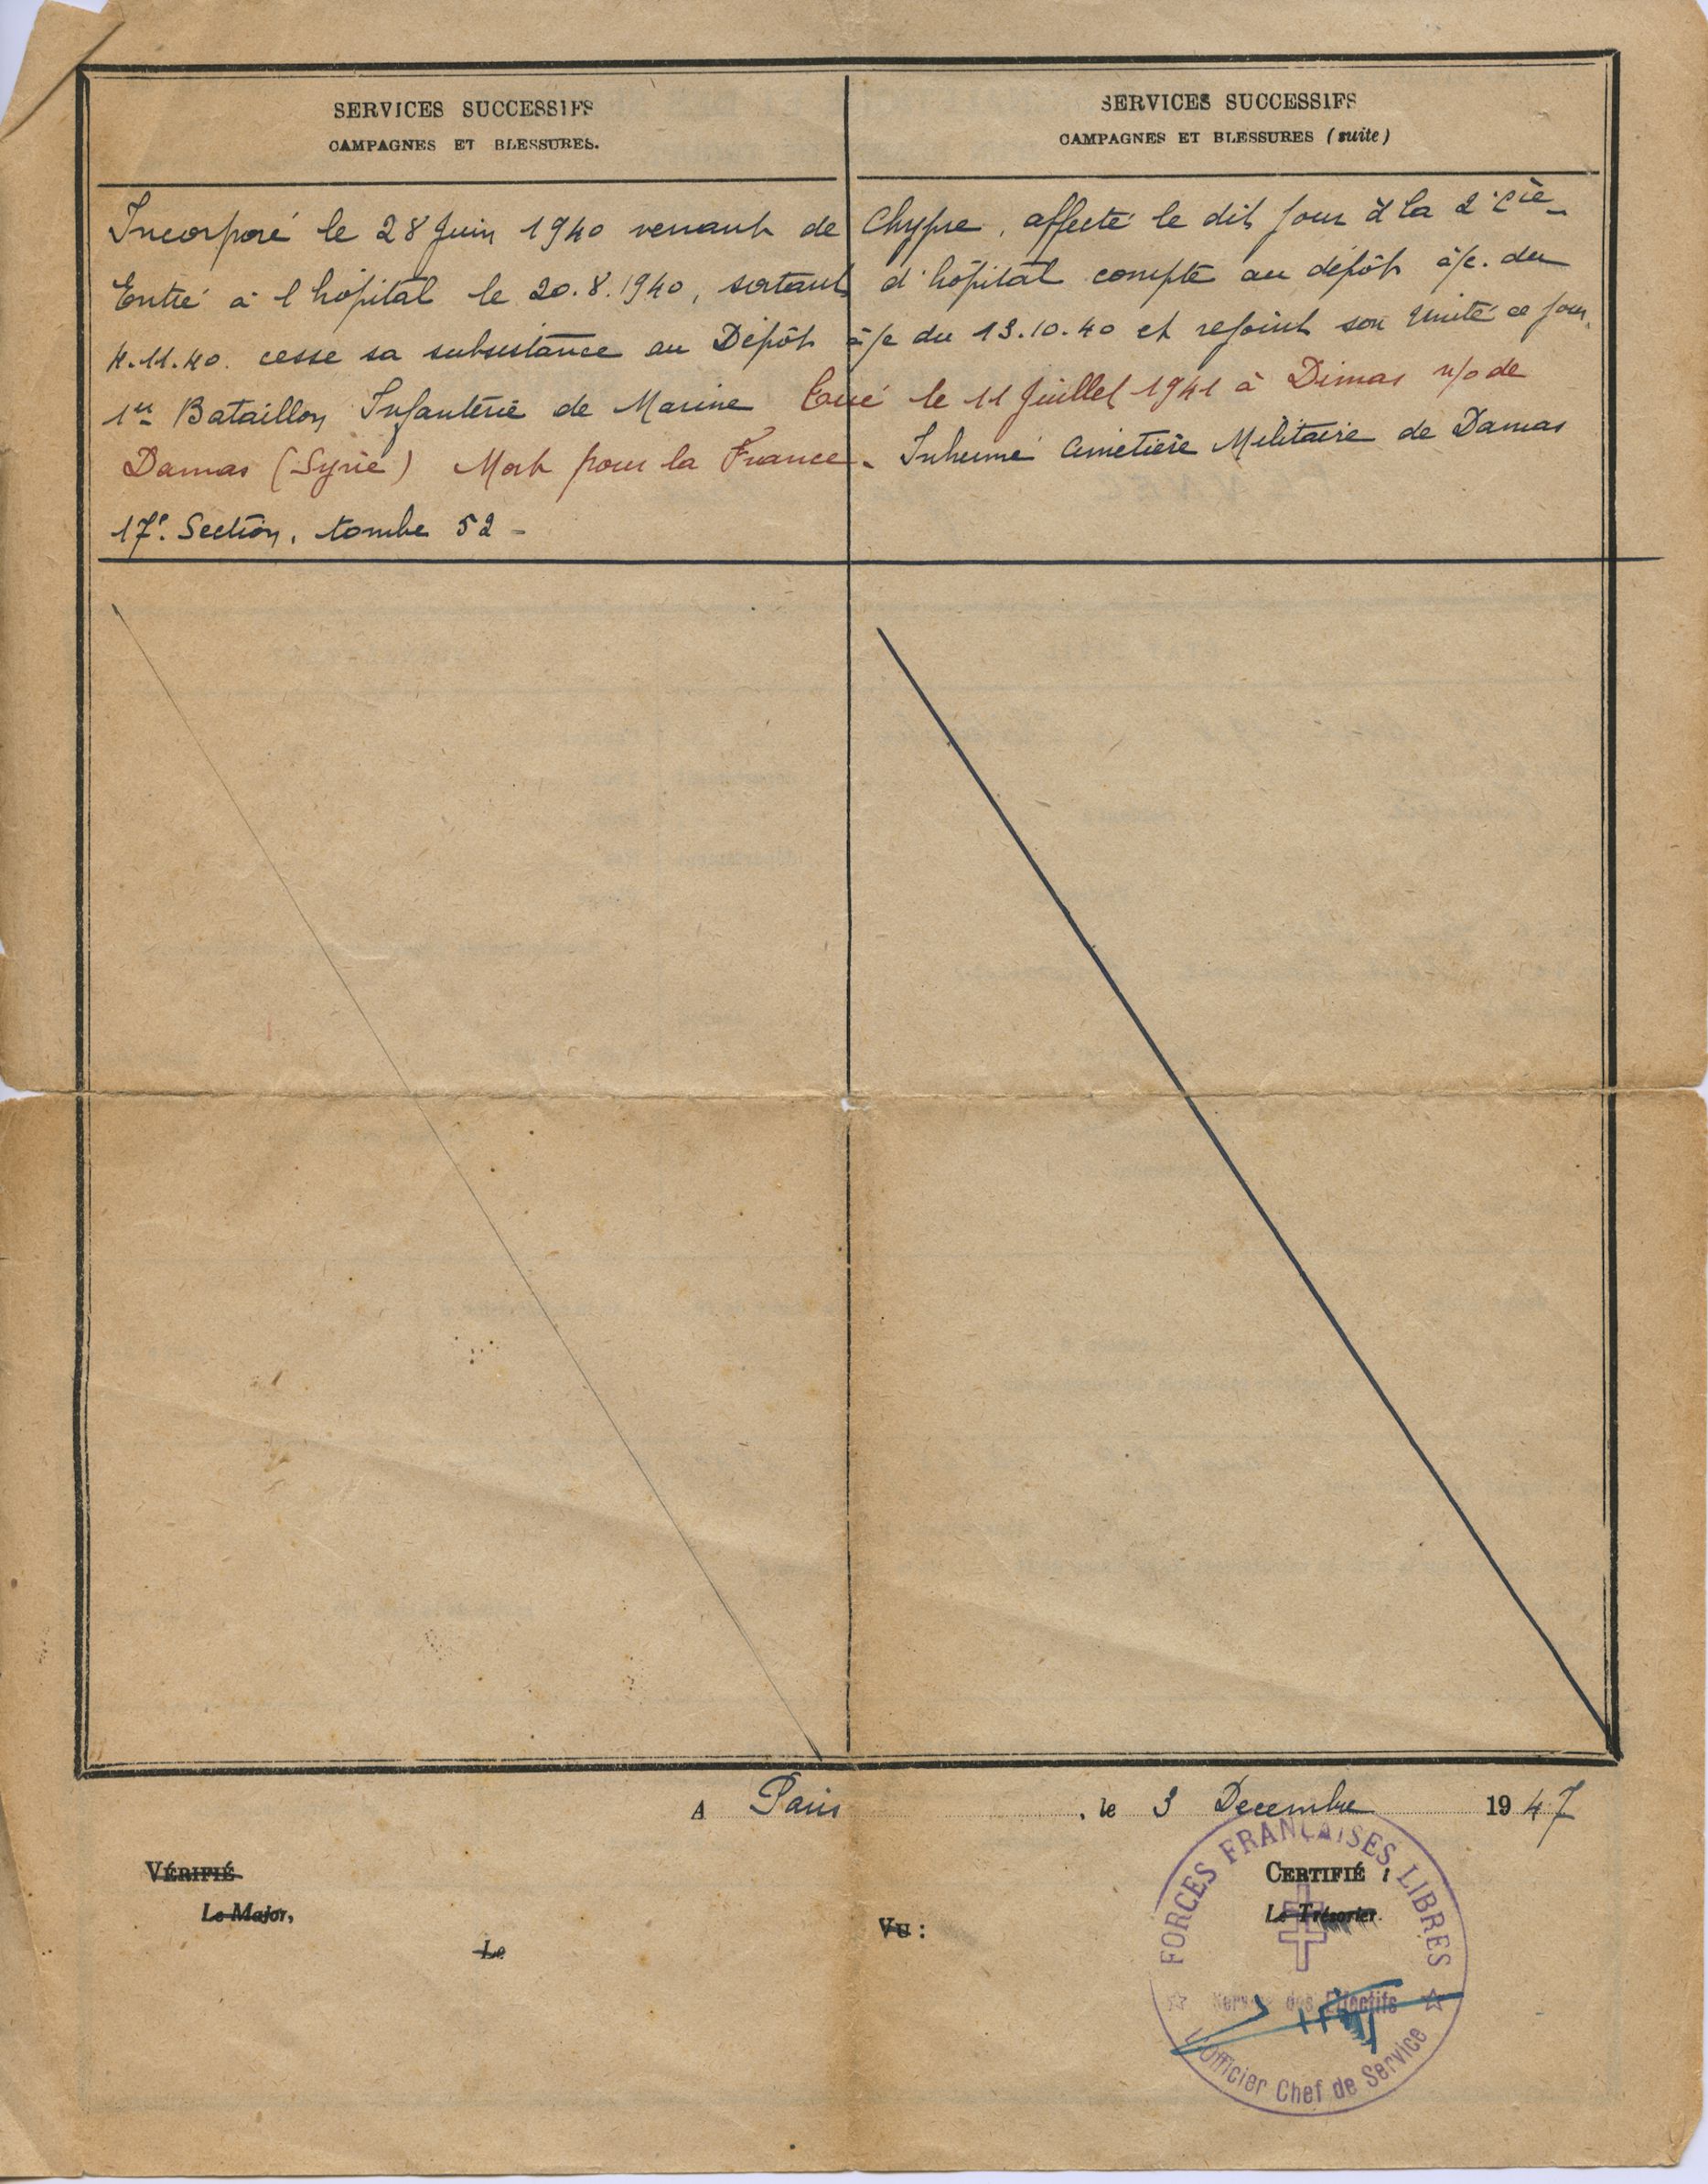 SERVICES SUCCESSIFS
CAMPAGNES ET BLESSURES.
SERVICES SUCCESSIFS
CAMPAGNES ET BLESSURES (suite)
Incorporé le 28 Juin 1940 venant de Chypre, affecté le dit jour à la 2e Cie_
Entré à l'hôpital le 20.8.1940, sortant d'hôpital compte au dépôt à/c. du
4.11.40. cesse sa subsistance au Dépôt à/c du 13.10.40 et rejoint son Unité ce jour.
1er Bataillon Infanterie de Marine Tué le 11 Juillet 1941 à Dimas n/o de
Damas (Syrie) Mort pour la France. Inhumé Cimetière Militaire de Damas
17e. Section, tombe 52 -
A Paris, le 3 Decembre 1947
VÉRIFIÉ
Le Major,
Le
VU :
CERTIFIÉ :
Le Trésorier.
FORCES FRANÇAISES LIBRES
Service des Effectifs
L'Officier Chef de Service